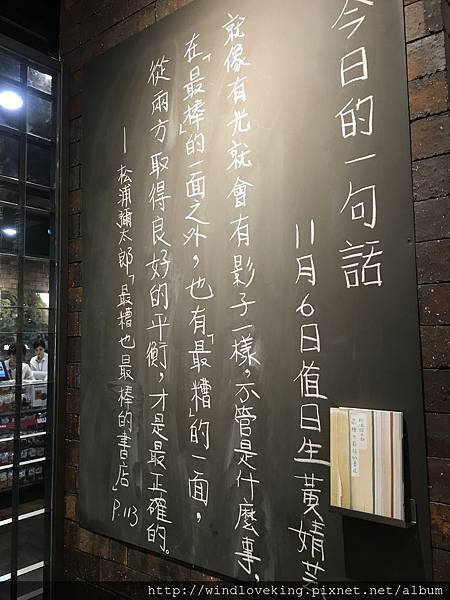 今日的一句話
11月6日值日生黃婧
就像有光就會有影子一樣，不管是什麼事，
在「最棒」的一面之外，也有「最糟」的一面，
從兩方取得良好的平衡，才是最正確的。
—松浦彌太郎「最糟也最棒的書店」P.113
http://windloveking.pixnet.net/album